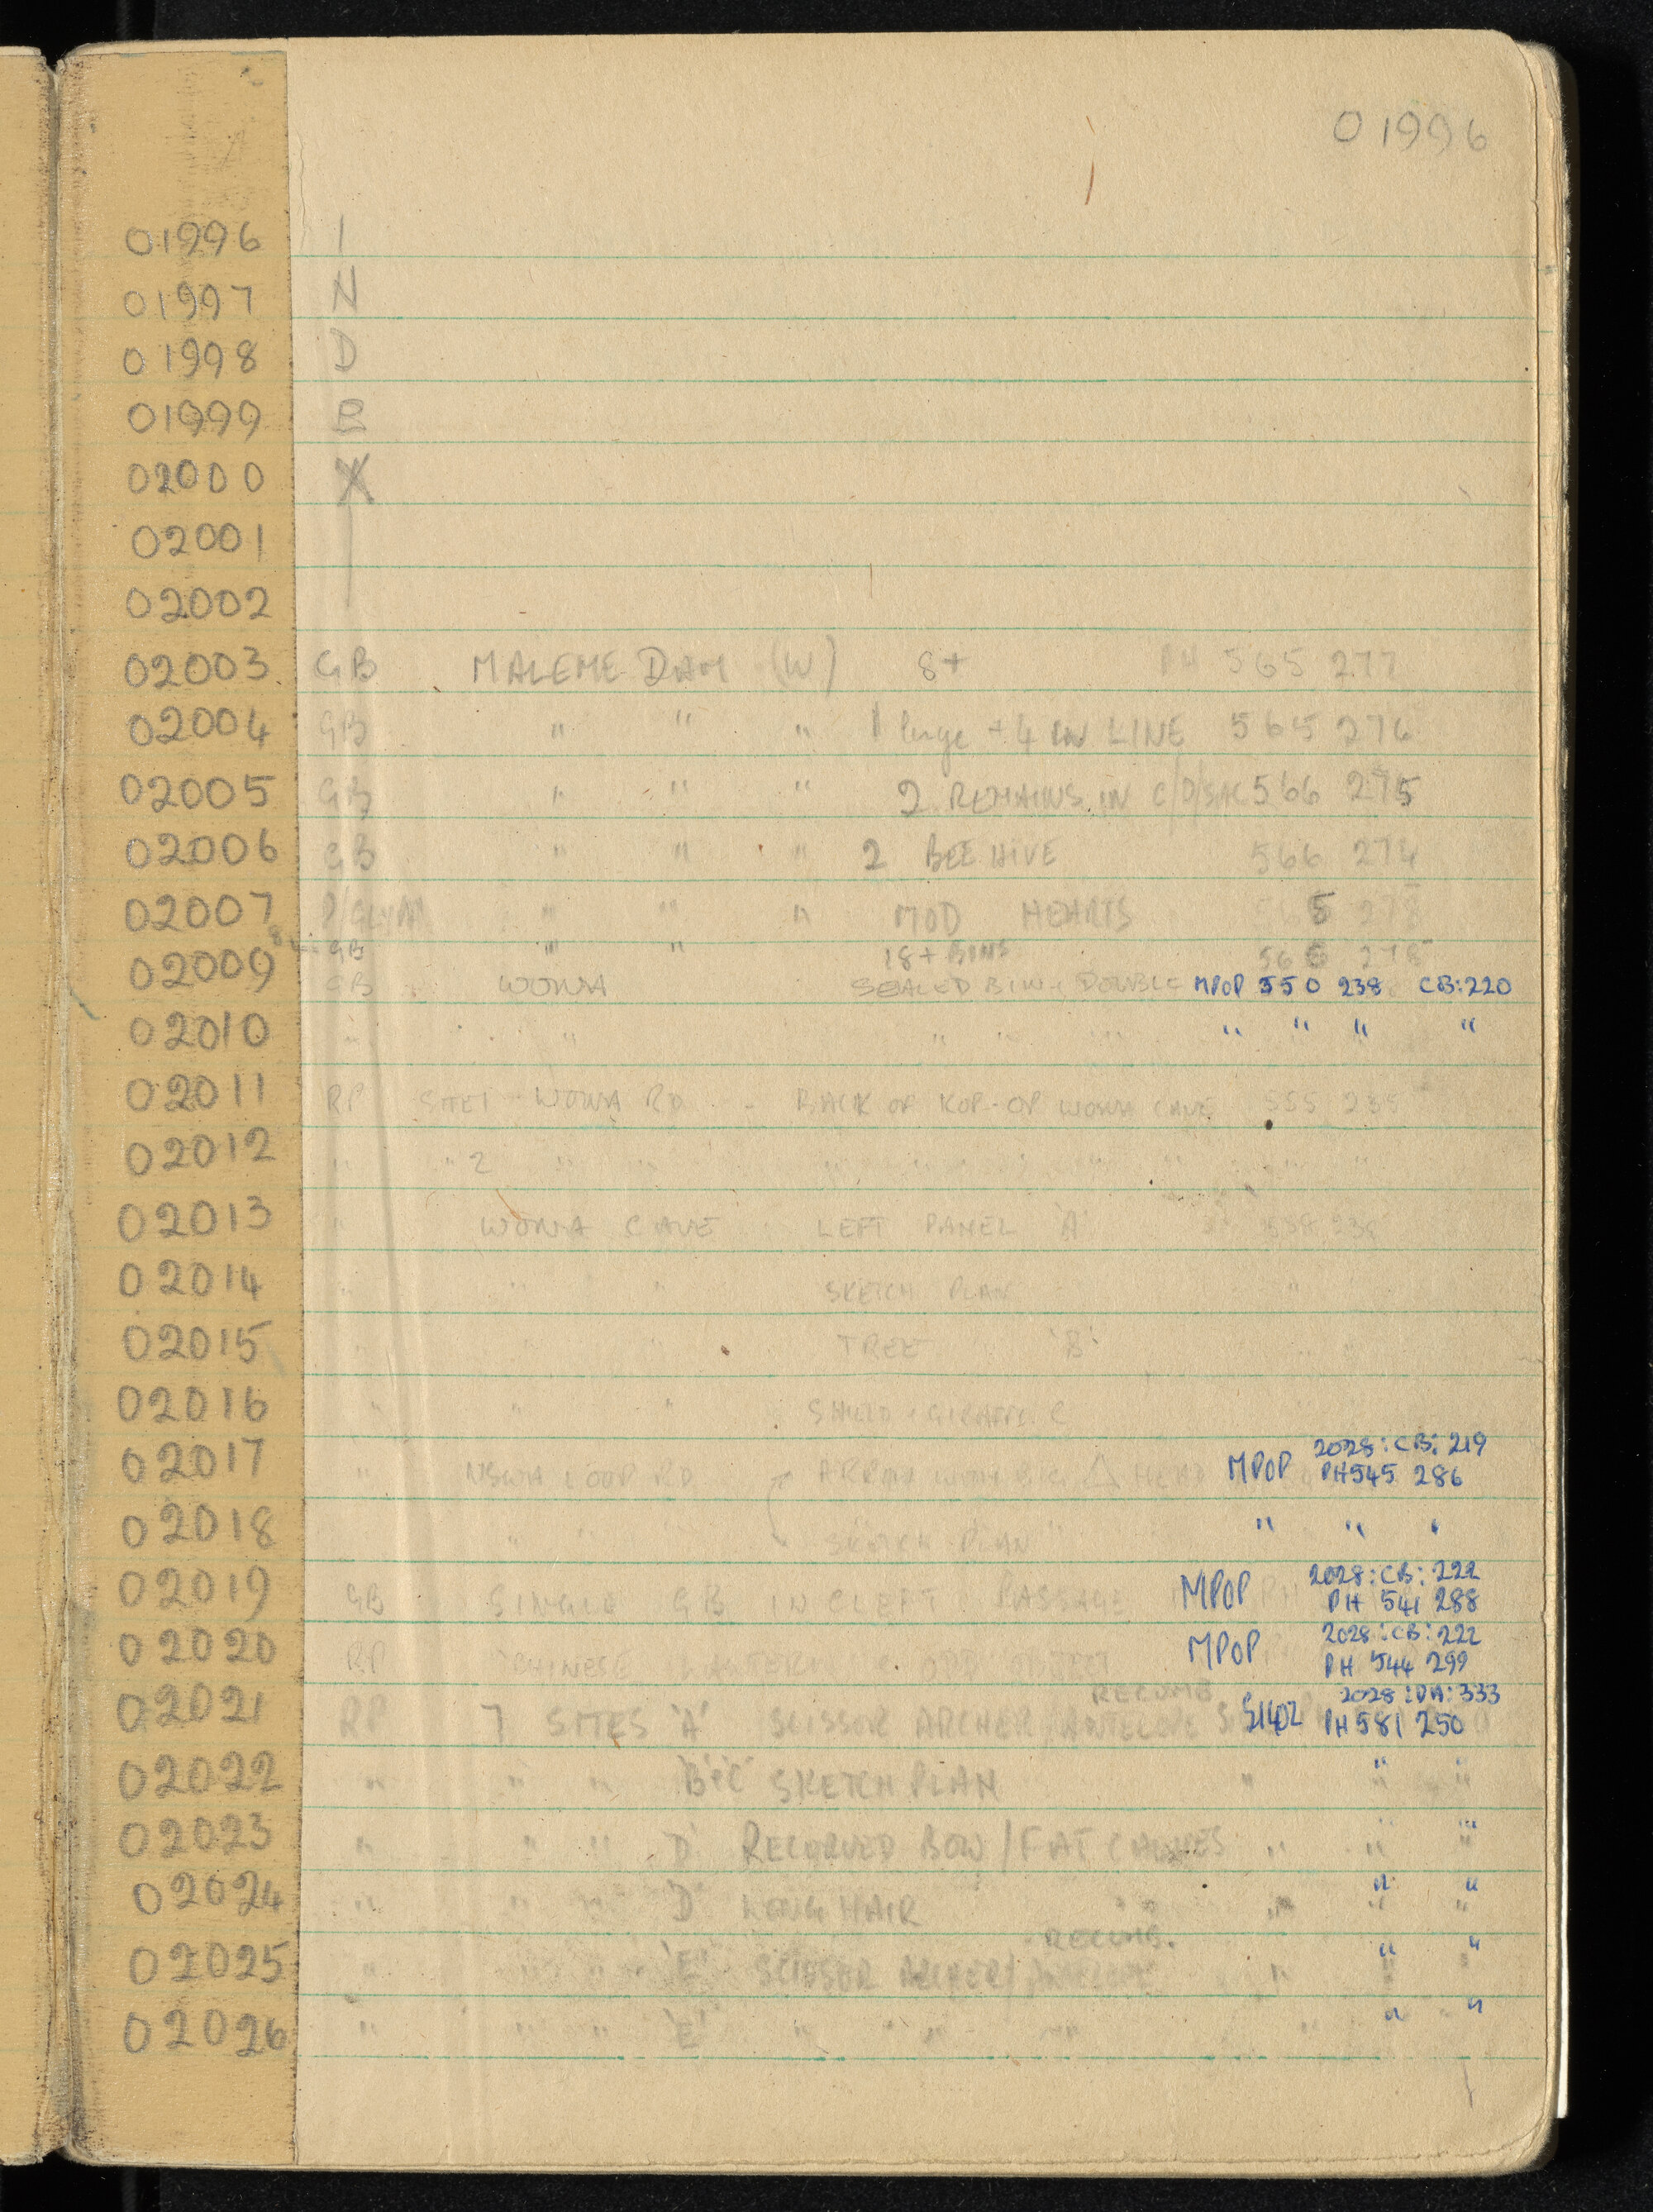 01996
01996 I
01997 N
01998 D
01999 E
02000 X
02001
02002
02003 GB MALEME DAM (W) 8+ PH 565 277
02004 GB " " " 1 large + 4 IN LINE 565 276
02005 GB " " " 2 REMAINS IN C/D/SAC 566 275
02006 GB " " " 2 BEEHIVE 566 274
02007 " " " MOD HEARTS 565 278
8 GB " " 18+ BINS 566 278
02009 GB WOWA SEALED BIN + DOUBLE MPOP 550 238 CB:220
02010 " " " " " " " "
02011 RP SITE 1 WOWA RD - BACK OF KOP-OP WOWA CAVE 555 235
02012 " " 2 " " " " " " " "
02013 " WOWA CAVE LEFT PANEL 'A' 558 238
02014 " " " SKETCH PLAN "
02015 " " " TREE 'B'
02016 " " " SHIELD + GIRAFFE C
02017 " NSWA LOOP RD ARROW WITH BIG △ HEAD MPOP 2028:CB:219
PH545 286
02018 " " SKETCH PLAN " " "
02019 GB SINGLE GB IN CLEFT PASSAGE MPOP 2028:CB:222
PH 541 288
02020 RP CHINESE ODD MPOP 2028:CB:222
PH 544 299
02021 RP 7 SITES 'A' SCISSOR ARCHER/ANTELOPE RECUMB. S1402 2028:DA:333
PH581 250
02022 " " " 'B+C' SKETCH PLAN " " "
02023 " " " 'D' RECURVED BOW/FAT CALVES " " "
02024 " " " 'D' LONG HAIR " " "
02025 " " " 'E' SCISSOR ARCHER/ANTELOPE RECUMB. " " "
02026 " " " 'E' " " " " " "